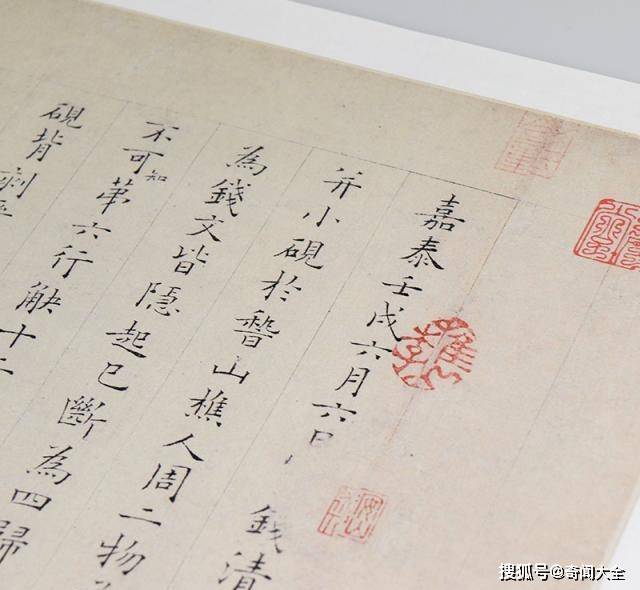 嘉泰壬戌六月六日 錢清
并小硯於稽山樵人周二物
為錢文皆隱起已斷為四歸
不可知第六行缺十二
硯背剝
搜狐号@奇闻大全